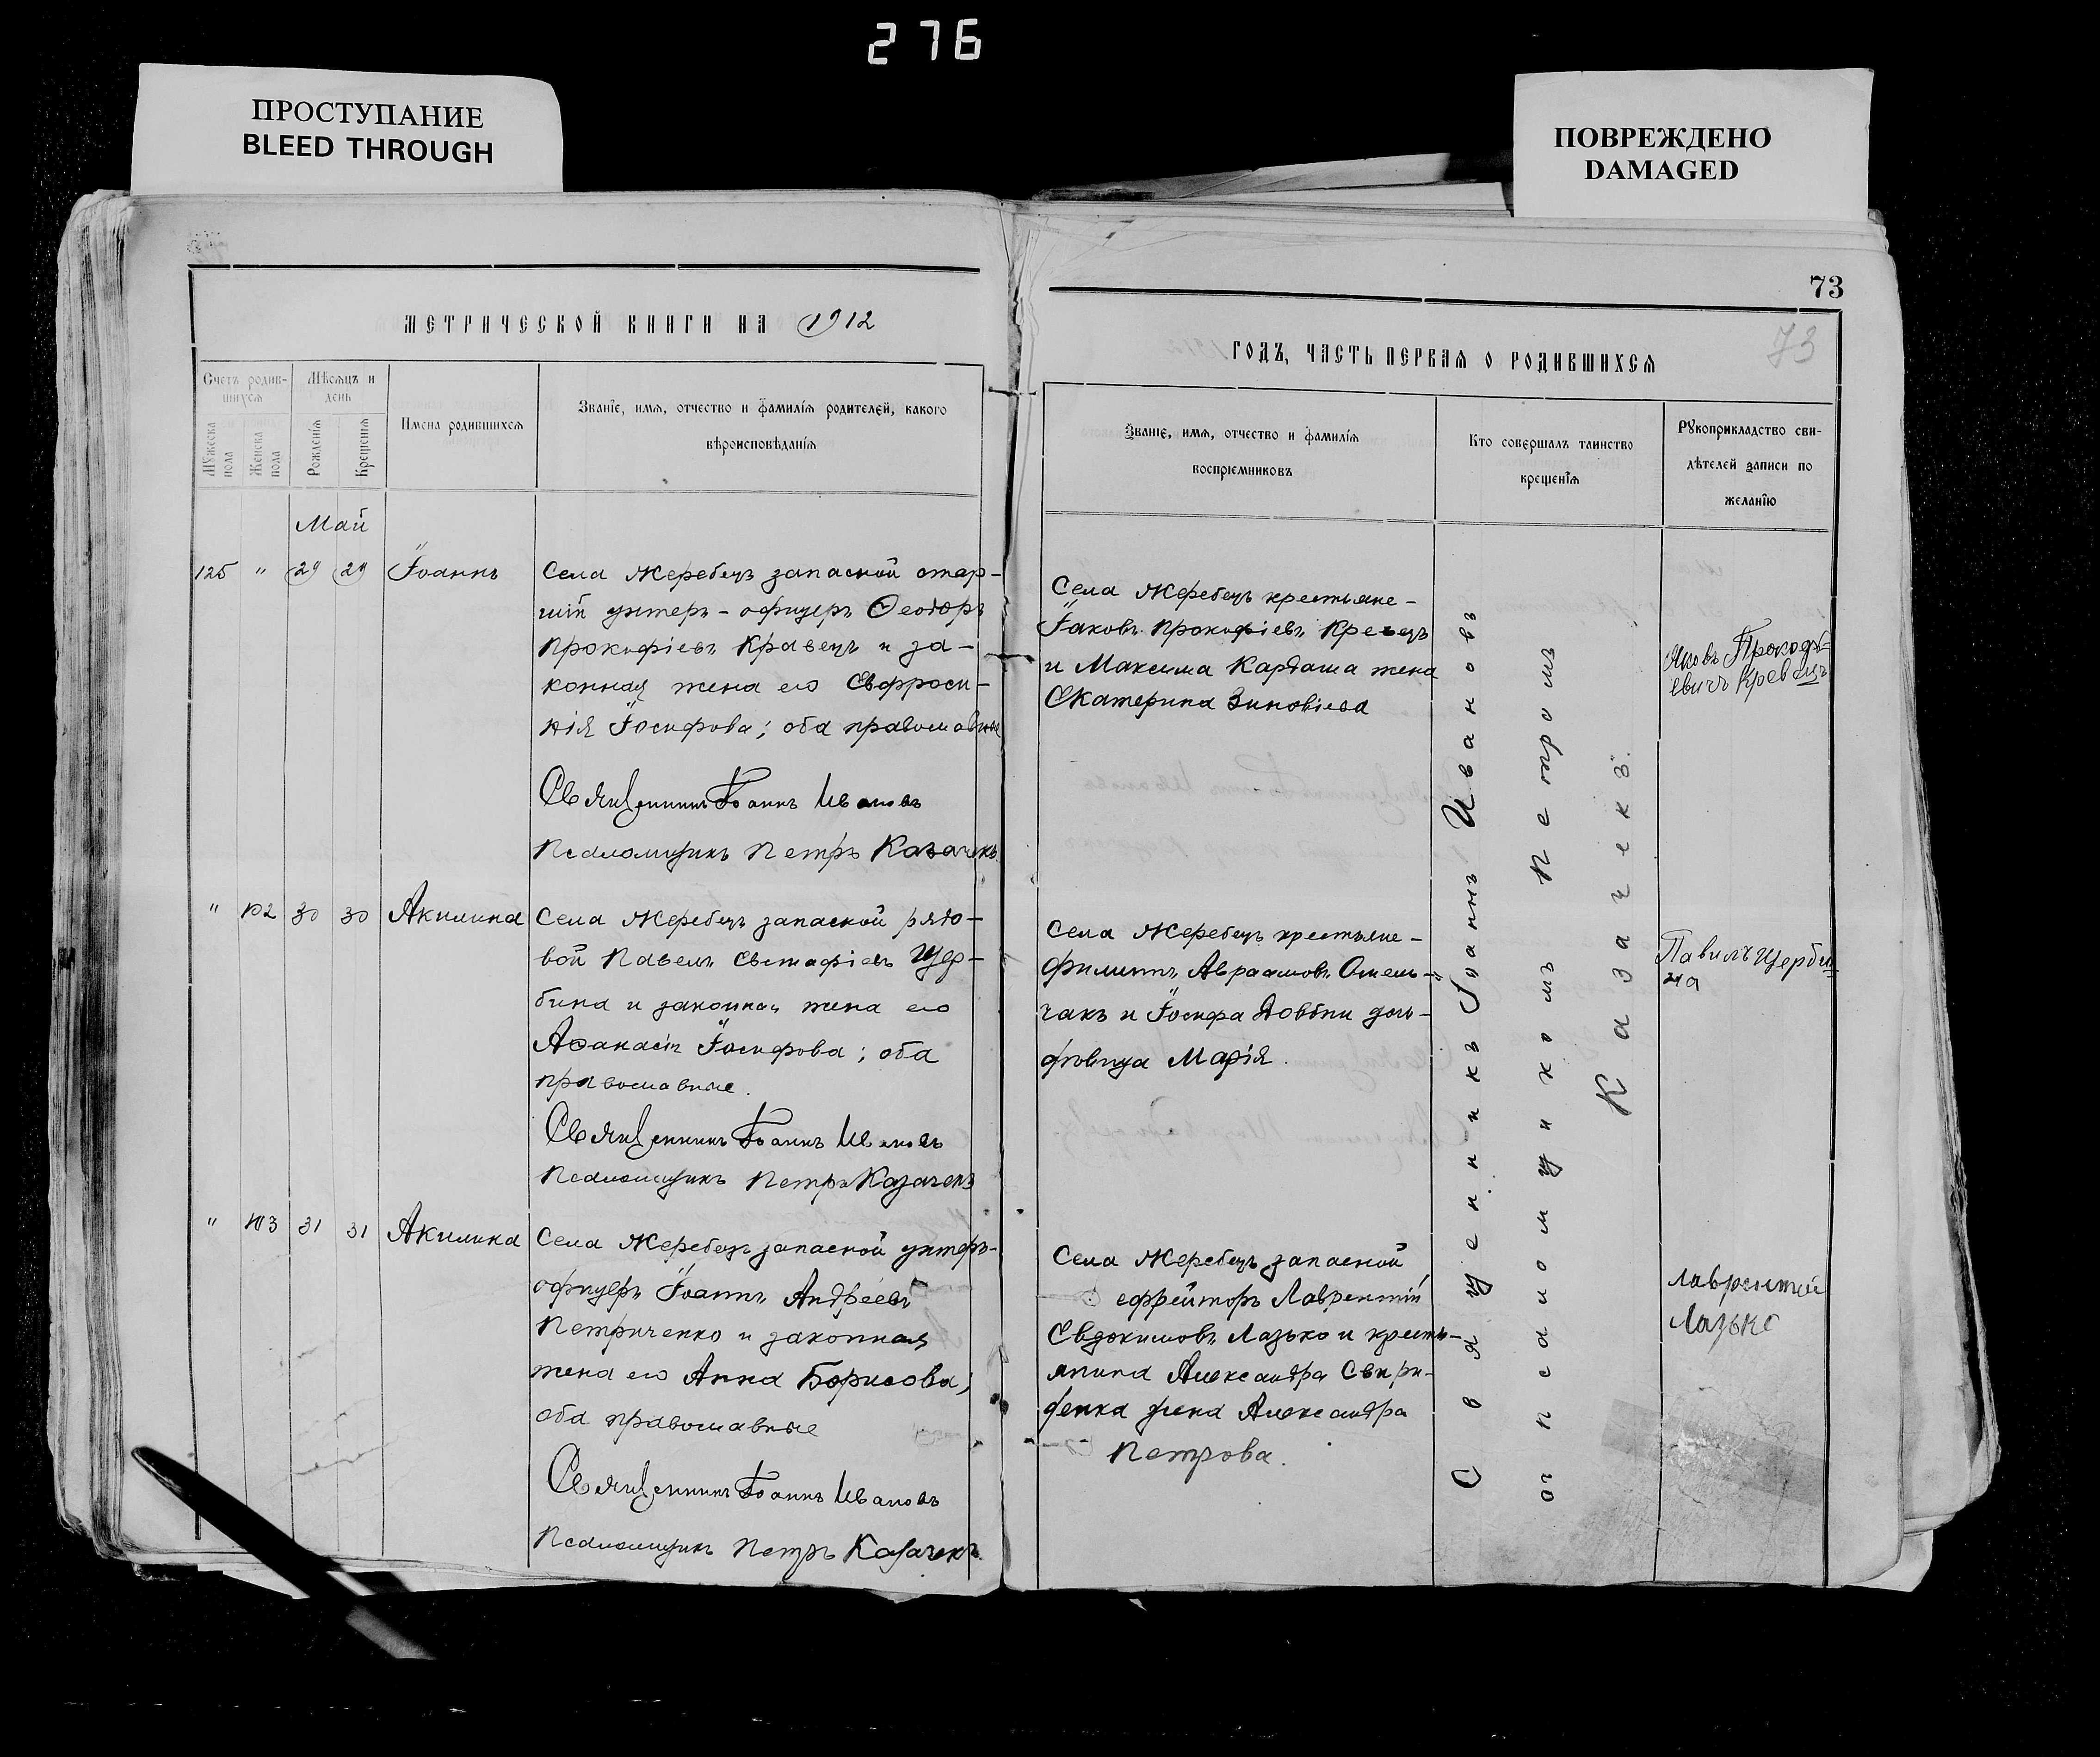 276
ПРОСТУПАНИЕ
BLEED THROUGH
ПОВРЕЖДЕНО
DAMAGED
МЕТРИЧЕСКОЙ КНИГИ НА 1912
Счетъ родив-
шихся
Мѣсяцъ и
день
Мужеска пола
Женска пола
Рожденія
Крещенія
Имена родившихся
Званіе, имя, отчество и фамилія родителей, какого
вѣроисповѣданія
Май
125 " 29 29 Іоаннъ
Села Жеребецъ запасной стар-
шій унтеръ-офицеръ Ѳеодоръ
Прокофіевъ Кравецъ и за-
конная жена его Евфроси-
нія Іосифова; оба православные
Священникъ Іоаннъ Ивановъ
Псаломщикъ Петръ Казачекъ.
" 102 30 30 Акилина
Села Жеребецъ запасной рядо-
вой Павелъ Евстафіевъ Щер-
бина и законная жена его
Аѳанасія Іосифова; оба
православные.
Священникъ Іоаннъ Ивановъ
Псаломщикъ Петръ Казачекъ
" 103 31 31 Акилина
Села Жеребецъ запасной унтеръ-
офицеръ Іоаннъ Андреевъ
Петриченко и законная
жена его Анна Борисова;
оба православные
Священникъ Іоаннъ Ивановъ
Псаломщикъ Петръ Казачекъ.
73
73
ГОДЪ, ЧАСТЬ ПЕРВАЯ О РОДИВШИХСЯ
Званіе, имя, отчество и фамилія
воспріемниковъ
Кто совершалъ таинство
крещенія
Рукоприкладство сви-
дѣтелей записи по
желанію
Села Жеребецъ крестьяне-
Іаковъ Прокофіевъ Кревецъ
и Максима Кардаша жена
Екатерина Зиновіева
Яковъ Прокофь-
евичъ Кревецъ
Села Жеребецъ крестьяне-
Филиппъ Авраамовъ Омель-
чакъ и Іосифа Довбни доч-
дѣвица Марія.
Павилъ Щерби-
на
Села Жеребецъ запасной
ефрейторъ Лаврентій
Евдокимовъ Лазько и кресть-
янина Александра Свири-
денка жена Александра
Петрова.
Лаврентий
Лазько
Священникъ Іоаннъ Ивановъ
съ псаломщикомъ Петромъ
Казачекъ.